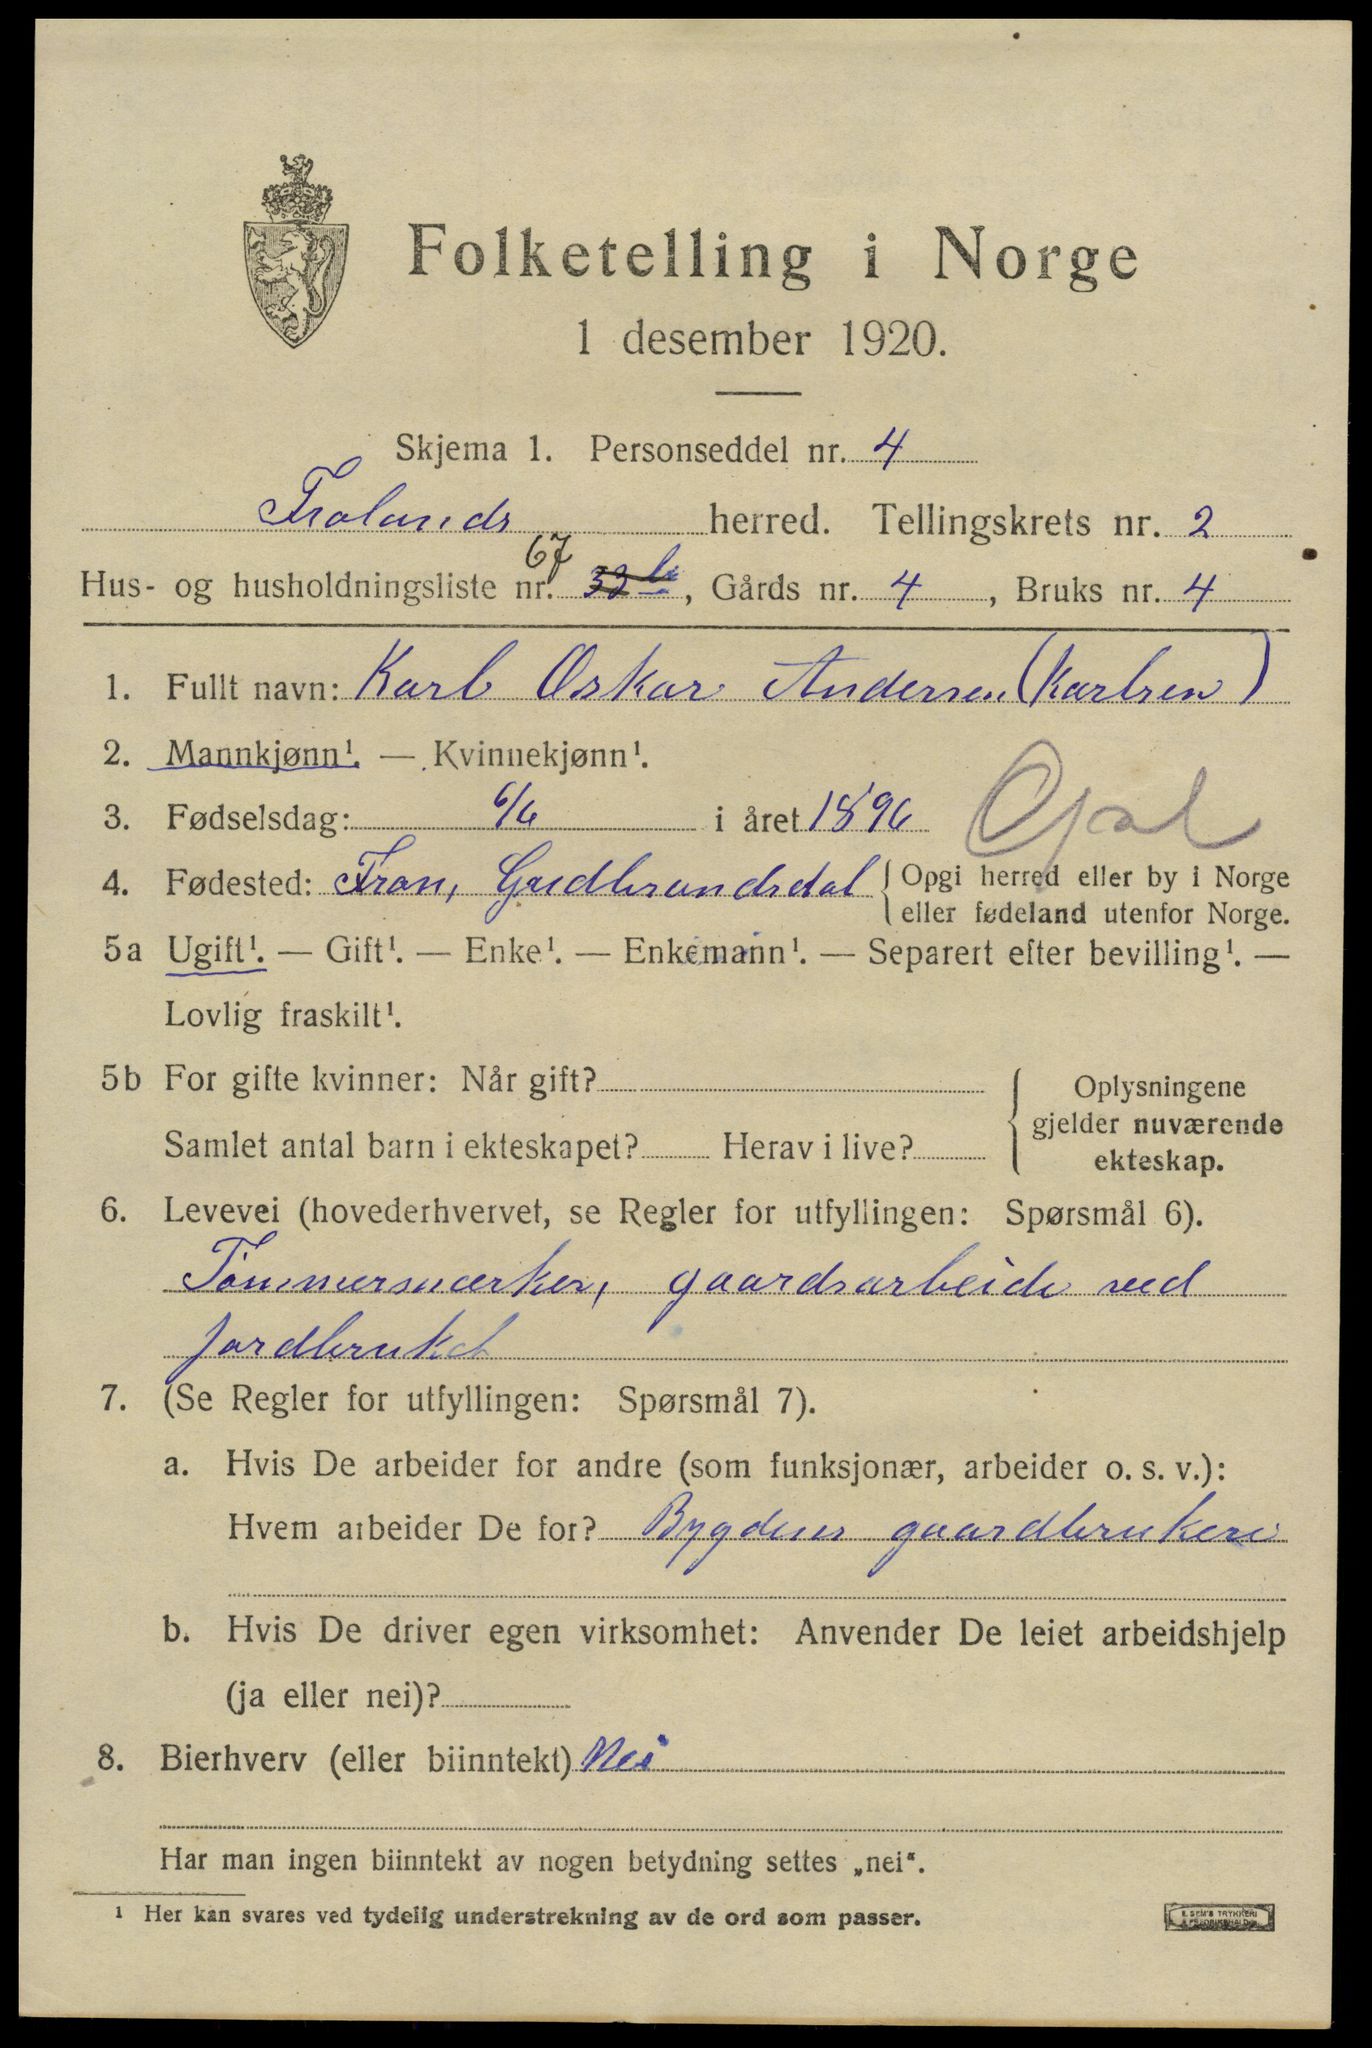 Folketelling i Norge
1 desember 1920.
Skjema 1. Personseddel nr. 4
Frolands herred. Tellingskrets nr. 2
67
Hus- og husholdningsliste nr. 32b, Gårds nr. 4, Bruks nr. 4
1. Fullt navn: Karl Oskar Andersen (Karlsen)
2. Mannkjønn¹. — Kvinnekjønn¹.
3. Fødselsdag: 6/6 i året 1896
4. Fødested: Fron, Gudbrandsdal {Opgi herred eller by i Norge
eller fødeland utenfor Norge.
5a Ugift¹. — Gift¹. — Enke¹. — Enkemann¹. — Separert efter bevilling¹. —
Lovlig fraskilt¹.
5b For gifte kvinner: Når gift?
Samlet antal barn i ekteskapet? Herav i live?
{ Oplysningene
gjelder nuværende
ekteskap.
6. Levevei (hovederhvervet, se Regler for utfyllingen: Spørsmål 6).
Tømmermerker, gaardsarbeide ved
jordbruket
7. (Se Regler for utfyllingen: Spørsmål 7).
a. Hvis De arbeider for andre (som funksjonær, arbeider o. s. v.):
Hvem arbeider De for? Bygdens gaardbrukere
b. Hvis De driver egen virksomhet: Anvender De leiet arbeidshjelp
(ja eller nei)?
8. Bierhverv (eller biinntekt) Nei
Har man ingen biinntekt av nogen betydning settes „nei“.
¹ Her kan svares ved tydelig understrekning av de ord som passer.
E. SEM'S TRYKKERI
FREDRIKSHALD